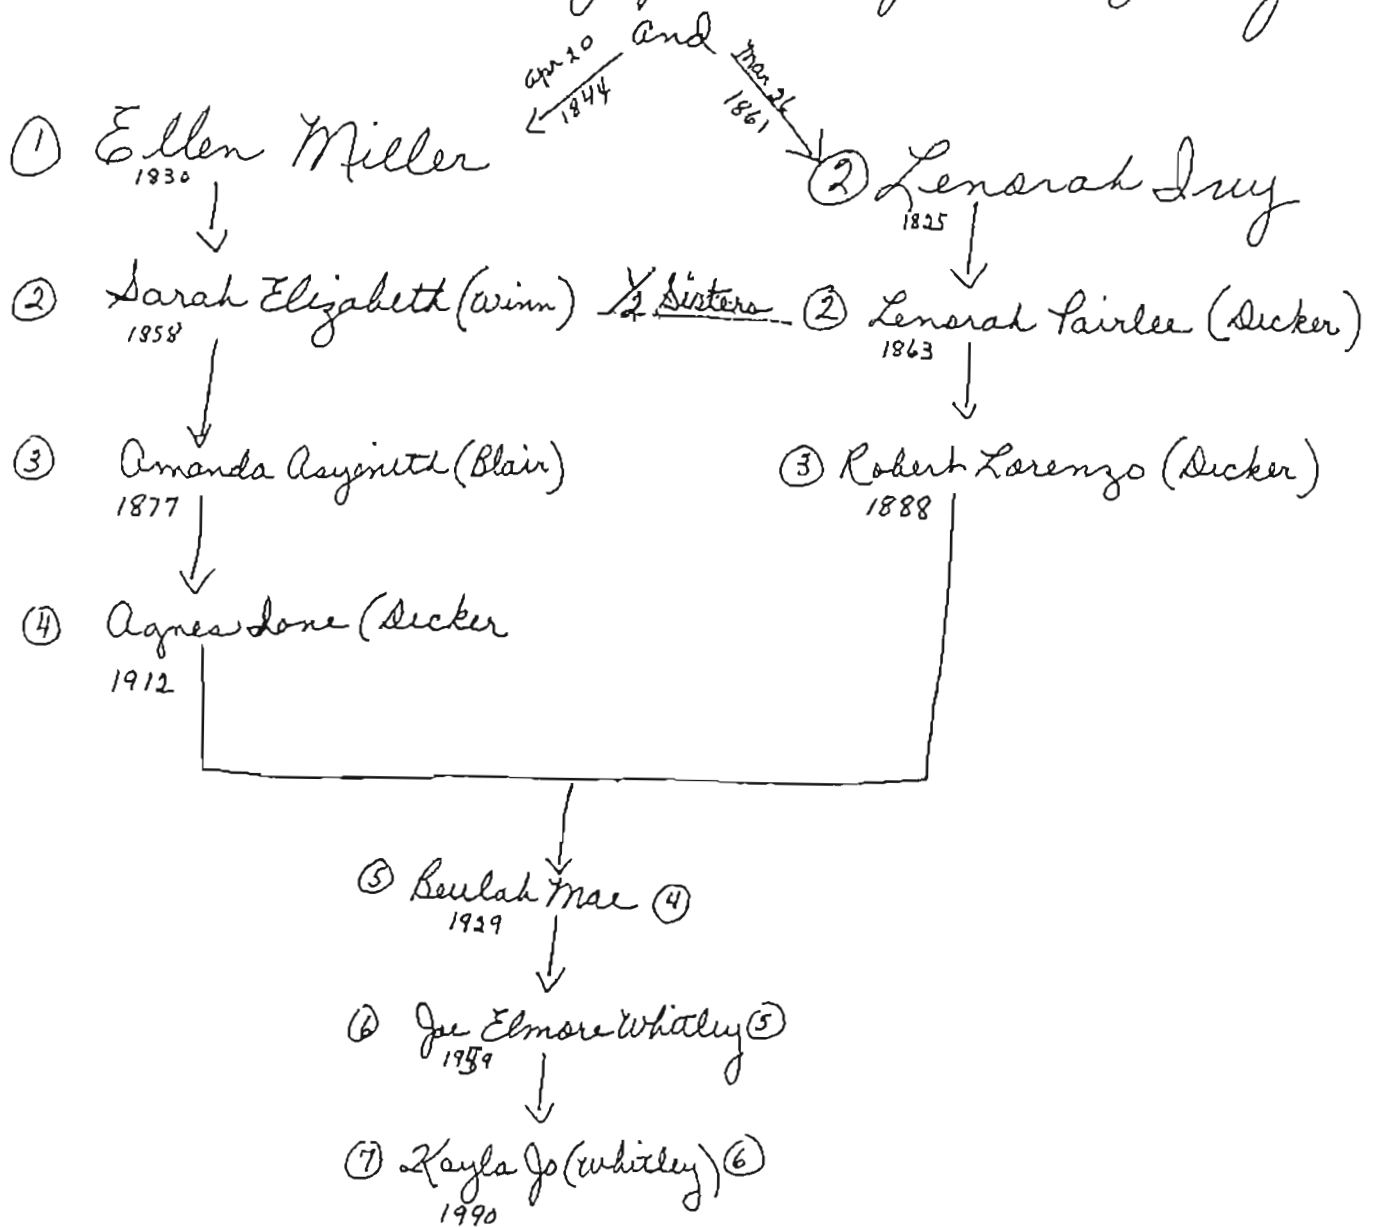 and
apr 20
1844
Mar 26
1861
① Ellen Miller
1830
② Lenorah Ivy
1825
② Sarah Elizabeth (Winn) 1/2 Sisters ② Lenorah Pairlee (Decker)
1858
1863
③ Amanda Asygnith (Blair) ③ Robert Lorenzo (Decker)
1877
1888
④ Agnes Ione (Decker
1912
⑤ Beulah Mae ④
1929
⑥ Joe Elmore Whitley ⑤
⑦ Kayla Jo (Whitley) ⑥
1990